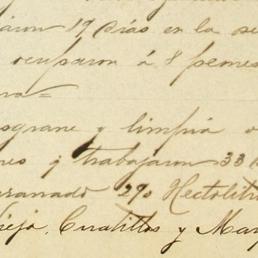 aron 19 dias en la se
ocuparon á 8 peones
na=
sgrane y limpia
nes y trabajaron 33
granado 290 Hectolit
ieja, Cuatillos y Mar